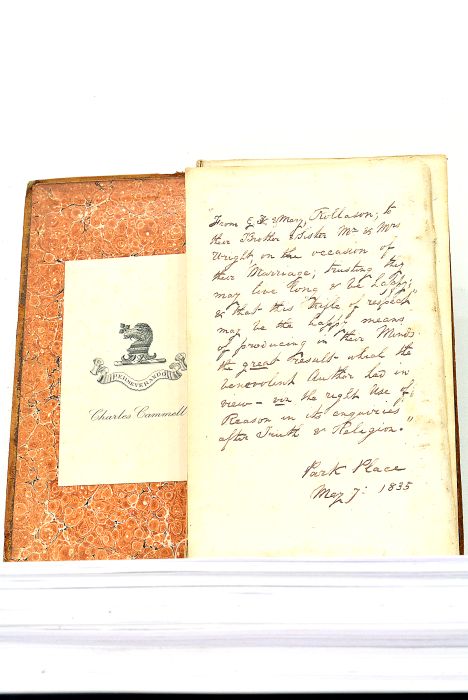 PERSEVERANDO
Charles Cammell
"From E. D. & Mary, Rollason, to
their Brother & Sister Mr. & Mrs
Wright, on the occasion of
their Marriage; trusting they
may live long & be happy;
& that this trifle of respect
may be the happy means
of producing in their Minds
the great result which the
benevolent Author had in
view — viz the right Use of
Reason in its enquiries
after Truth & Religion."
Park Place
May 7: 1835